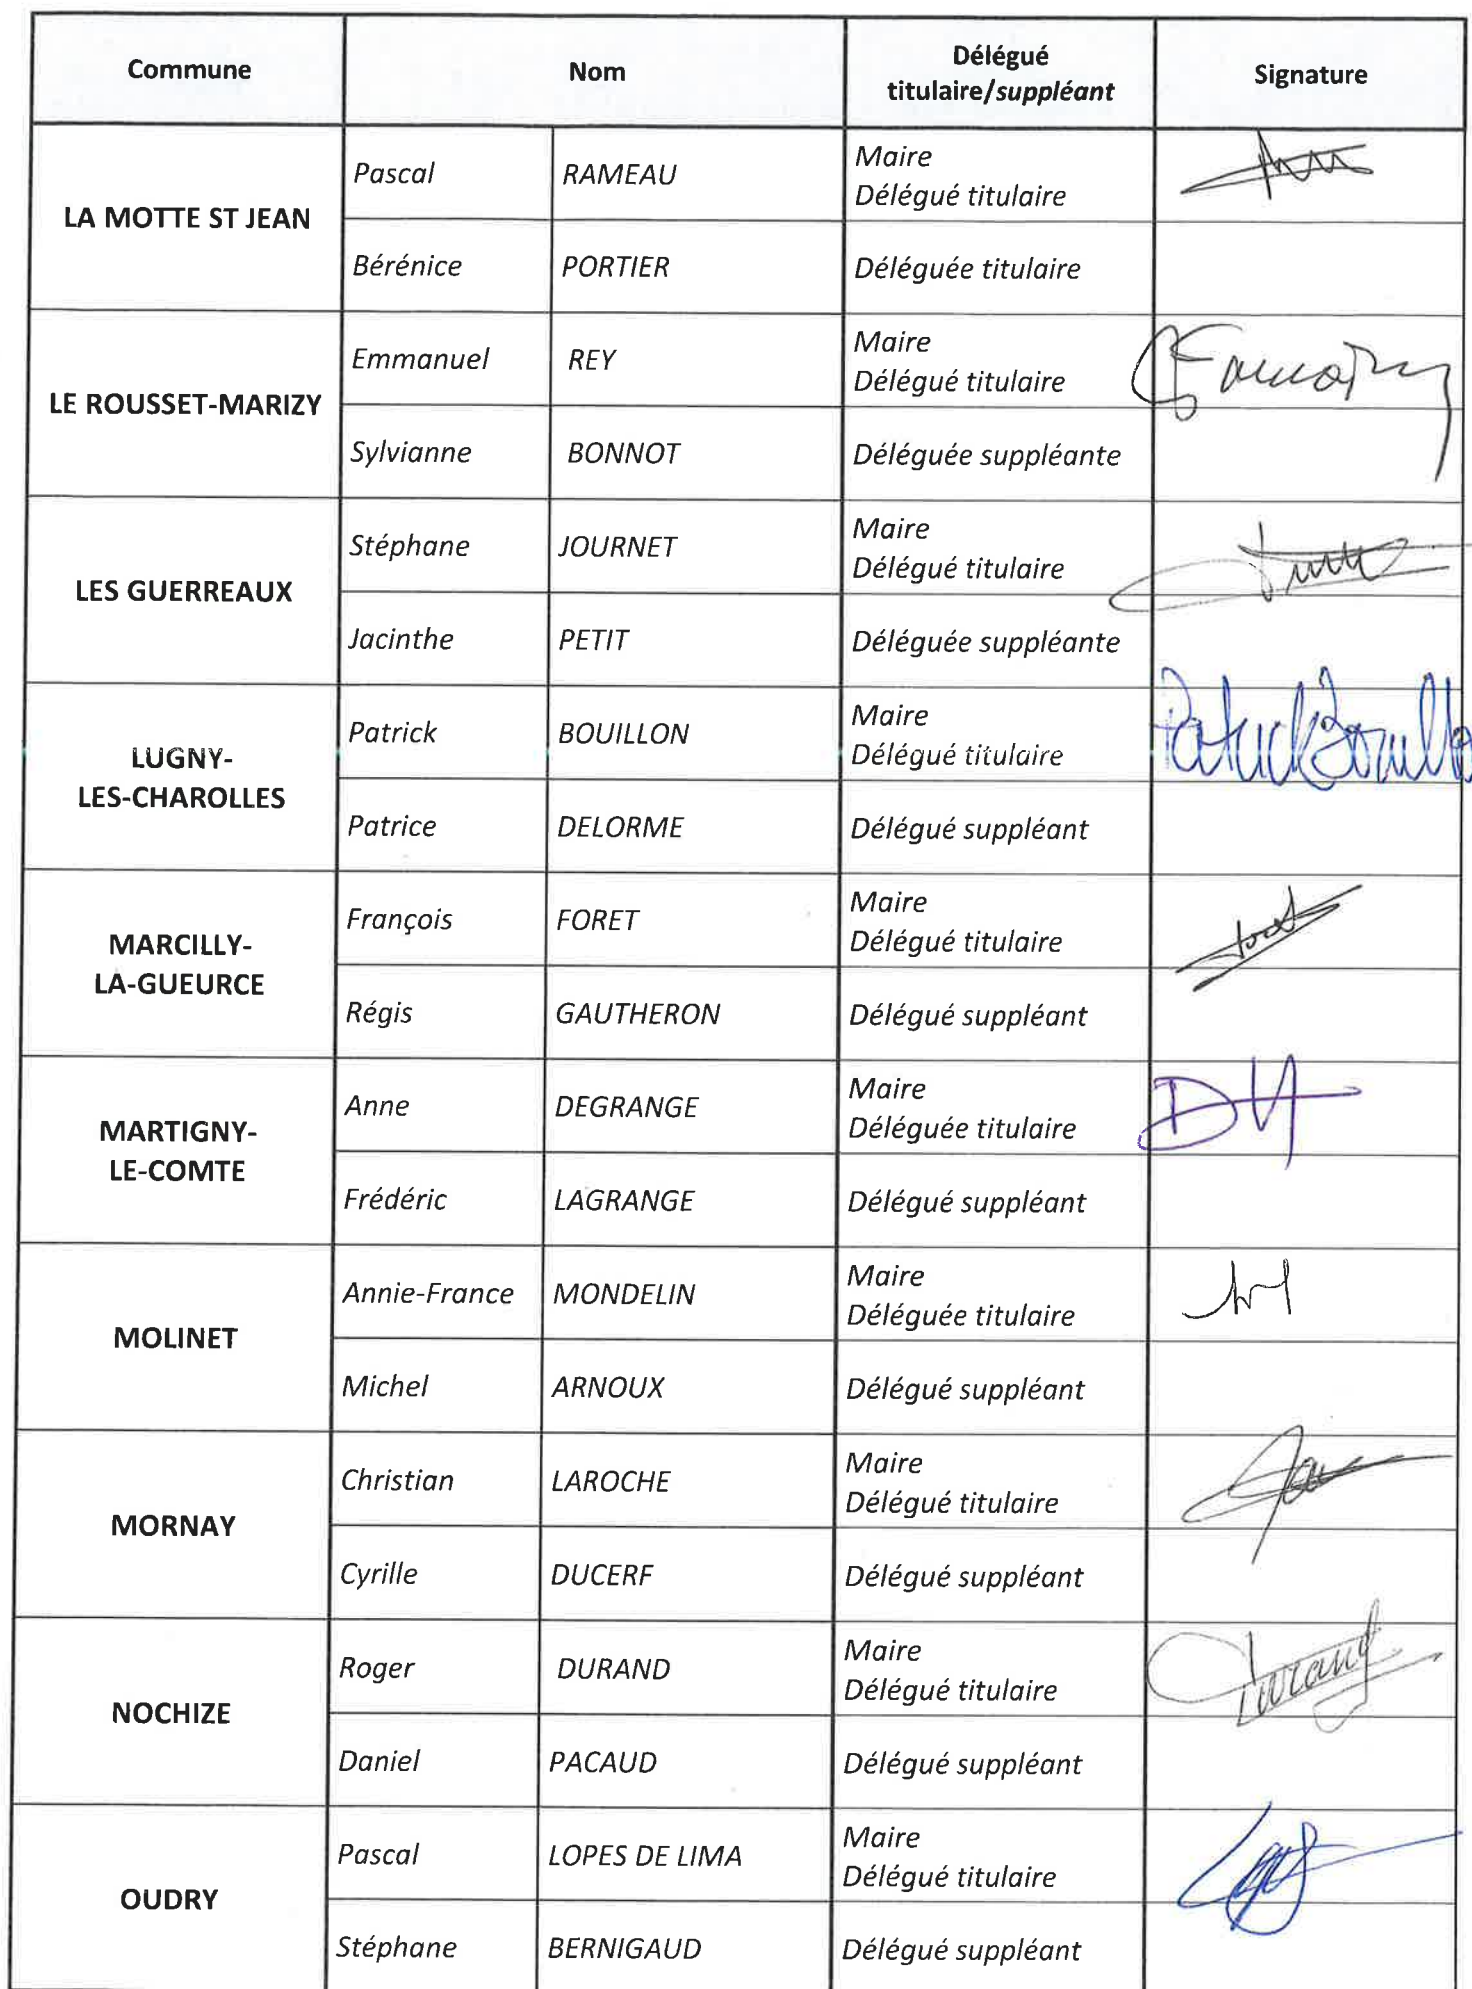 Commune
Nom
Délégué
titulaire/suppléant
Signature
LA MOTTE ST JEAN
Pascal
RAMEAU
Maire
Délégué titulaire
Bérénice
PORTIER
Déléguée titulaire
LE ROUSSET-MARIZY
Emmanuel
REY
Maire
Délégué titulaire
Sylvianne
BONNOT
Déléguée suppléante
LES GUERREAUX
Stéphane
JOURNET
Maire
Délégué titulaire
Jacinthe
PETIT
Déléguée suppléante
LUGNY-
LES-CHAROLLES
Patrick
BOUILLON
Maire
Délégué titulaire
Patrice
DELORME
Délégué suppléant
MARCILLY-
LA-GUEURCE
François
FORET
Maire
Délégué titulaire
Régis
GAUTHERON
Délégué suppléant
MARTIGNY-
LE-COMTE
Anne
DEGRANGE
Maire
Déléguée titulaire
Frédéric
LAGRANGE
Délégué suppléant
MOLINET
Annie-France
MONDELIN
Maire
Déléguée titulaire
Michel
ARNOUX
Délégué suppléant
MORNAY
Christian
LAROCHE
Maire
Délégué titulaire
Cyrille
DUCERF
Délégué suppléant
NOCHIZE
Roger
DURAND
Maire
Délégué titulaire
Durand
Daniel
PACAUD
Délégué suppléant
OUDRY
Pascal
LOPES DE LIMA
Maire
Délégué titulaire
Stéphane
BERNIGAUD
Délégué suppléant